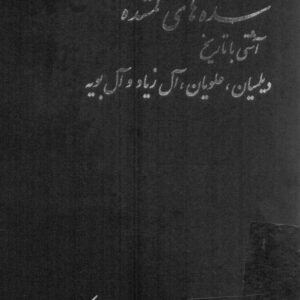 سده های گمشده
آشتی با تاریخ
دیلمیان، علویان، آل زیاد و آل بویه